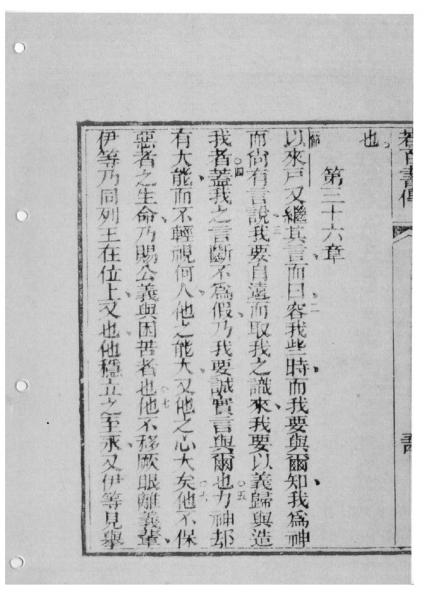 若百書傳
也
第三十六章
節一以來戶又繼其言而曰○二容我些時而我要與爾知我為神
而尚有言說○三我要自遠而取我之識來我要以義歸與造
我者○四蓋我之言斷不為假乃我要誠實言與爾也○五夫神却
有大能而不輕視何人他之能大又他之心大矣○六他不保
惡者之生命乃賜公義與困苦者也○七他不移厥眼離義輩
伊等乃同列王在位上又也他穩立之至永又伊等見舉